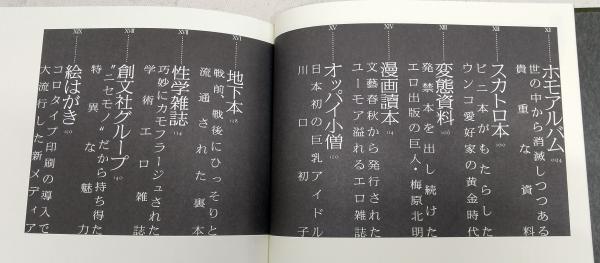 XI
ホモアルバム 094
世の中から消滅しつつある
貴重な資料
XII
スカトロ本 100
ビニ本がもたらした
ウンコ愛好家の黄金時代
XIII
変態資料 106
発禁本を出し続けた
エロ出版の巨人・梅原北明
XIV
漫画讀本 114
文藝春秋から発行された
ユーモア溢れるエロ雑誌
XV
オッパイ小僧 120
日本初の巨乳アイドル
川口初子
XVI
地下本 128
戦前、戦後にひっそりと
流通された裏本
XVII
性学雑誌 134
巧妙にカモフラージュされた
学術エロ雑誌
XVIII
創文社グループ 140
“ニセモノ”だから持ち得た
特異な魅力
XIX
絵はがき
コロタイプ印刷の導入で
大流行した新メディア